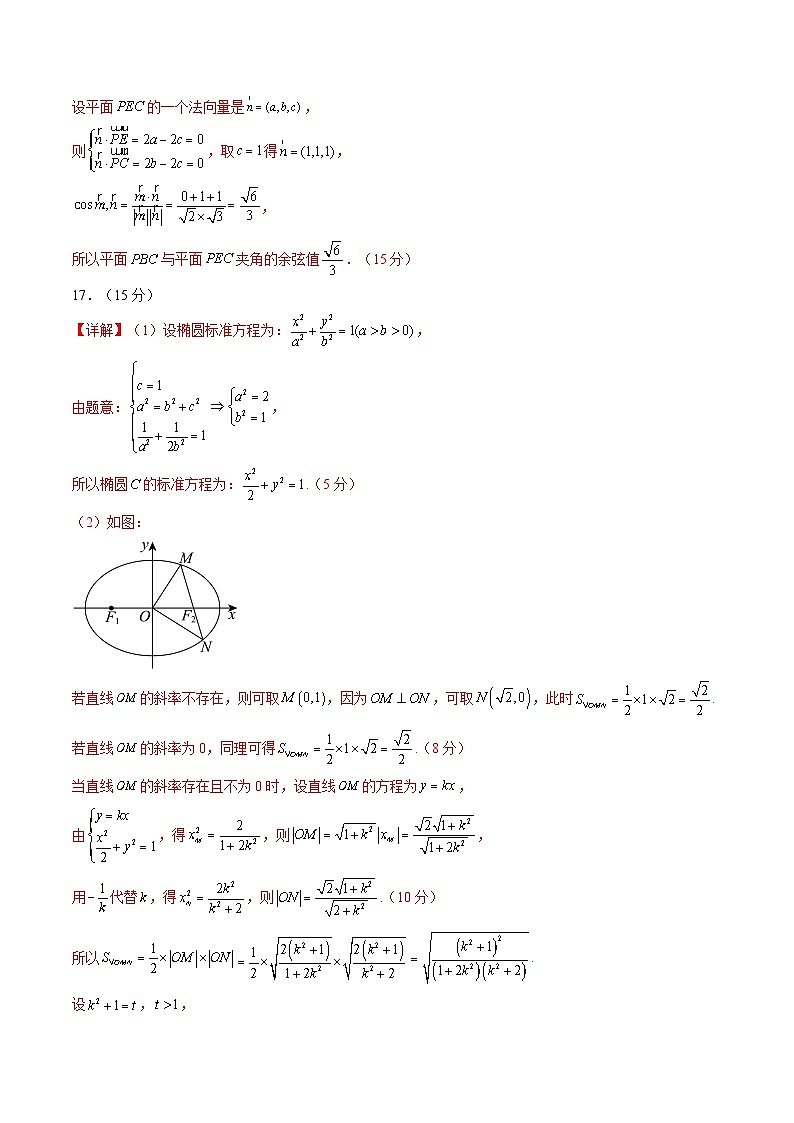 设平面 PEC 的一个法向量是 n = (a, b, c)，
则 { n · PE = 2a − 2c = 0
n · PC = 2b − 2c = 0 ，取 c = 1 得 n = (1,1,1)，
cos m, n = m · n / |m||n| = (0 + 1 + 1) / (√2 × √3) = √6 / 3，
所以平面 PBC 与平面 PEC 夹角的余弦值 √6 / 3．（15 分）
17．（15 分）
【详解】（1）设椭圆标准方程为：x²/a² + y²/b² = 1(a > b > 0)，
由题意：{ c = 1
a² = b² + c²
1/a² + 1/2b² = 1 ⇒ { a² = 2
b² = 1 ，
所以椭圆 C 的标准方程为：x²/2 + y² = 1.（5 分）
（2）如图：
y
M
F₁ O F₂ x
N
若直线 OM 的斜率不存在，则可取 M(0,1)，因为 OM ⊥ ON，可取 N(√2,0)，此时 S▽OMN = 1/2 × 1 × √2 = √2/2 .
若直线 OM 的斜率为 0，同理可得 S▽OMN = 1/2 × 1 × √2 = √2/2 .（8 分）
当直线 OM 的斜率存在且不为 0 时，设直线 OM 的方程为 y = kx，
由 { y = kx
x²/2 + y² = 1 ，得 x_M² = 2/(1 + 2k²)，则 |OM| = √(1 + k²) |x_M| = √2 √(1 + k²) / √(1 + 2k²)，
用 − 1/k 代替 k，得 x_N² = 2k²/(k² + 2)，则 |ON| = √2 √(1 + k²) / √(2 + k²) .（10 分）
所以 S▽OMN = 1/2 × |OM| × |ON| = 1/2 × √(2(k² + 1)/(1 + 2k²)) × √(2(k² + 1)/(k² + 2)) = √((k² + 1)²/((1 + 2k²)(k² + 2))) .
设 k² + 1 = t，t > 1，